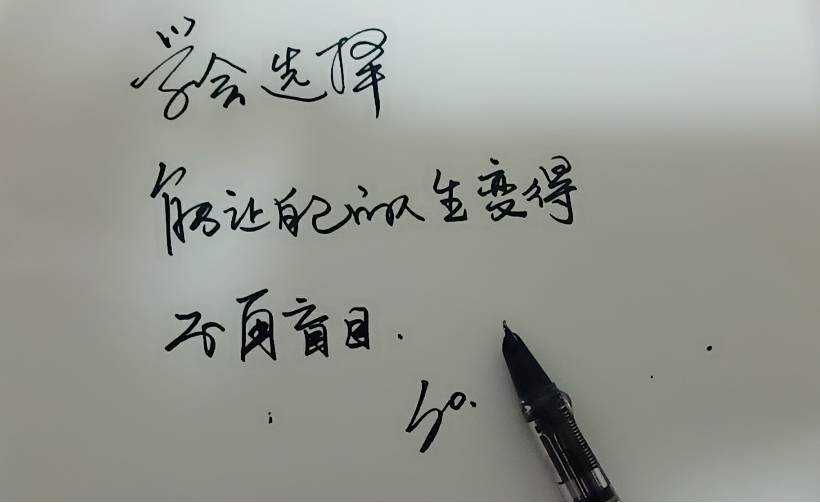 学会选择
能让自己的人生变得
不再盲目.